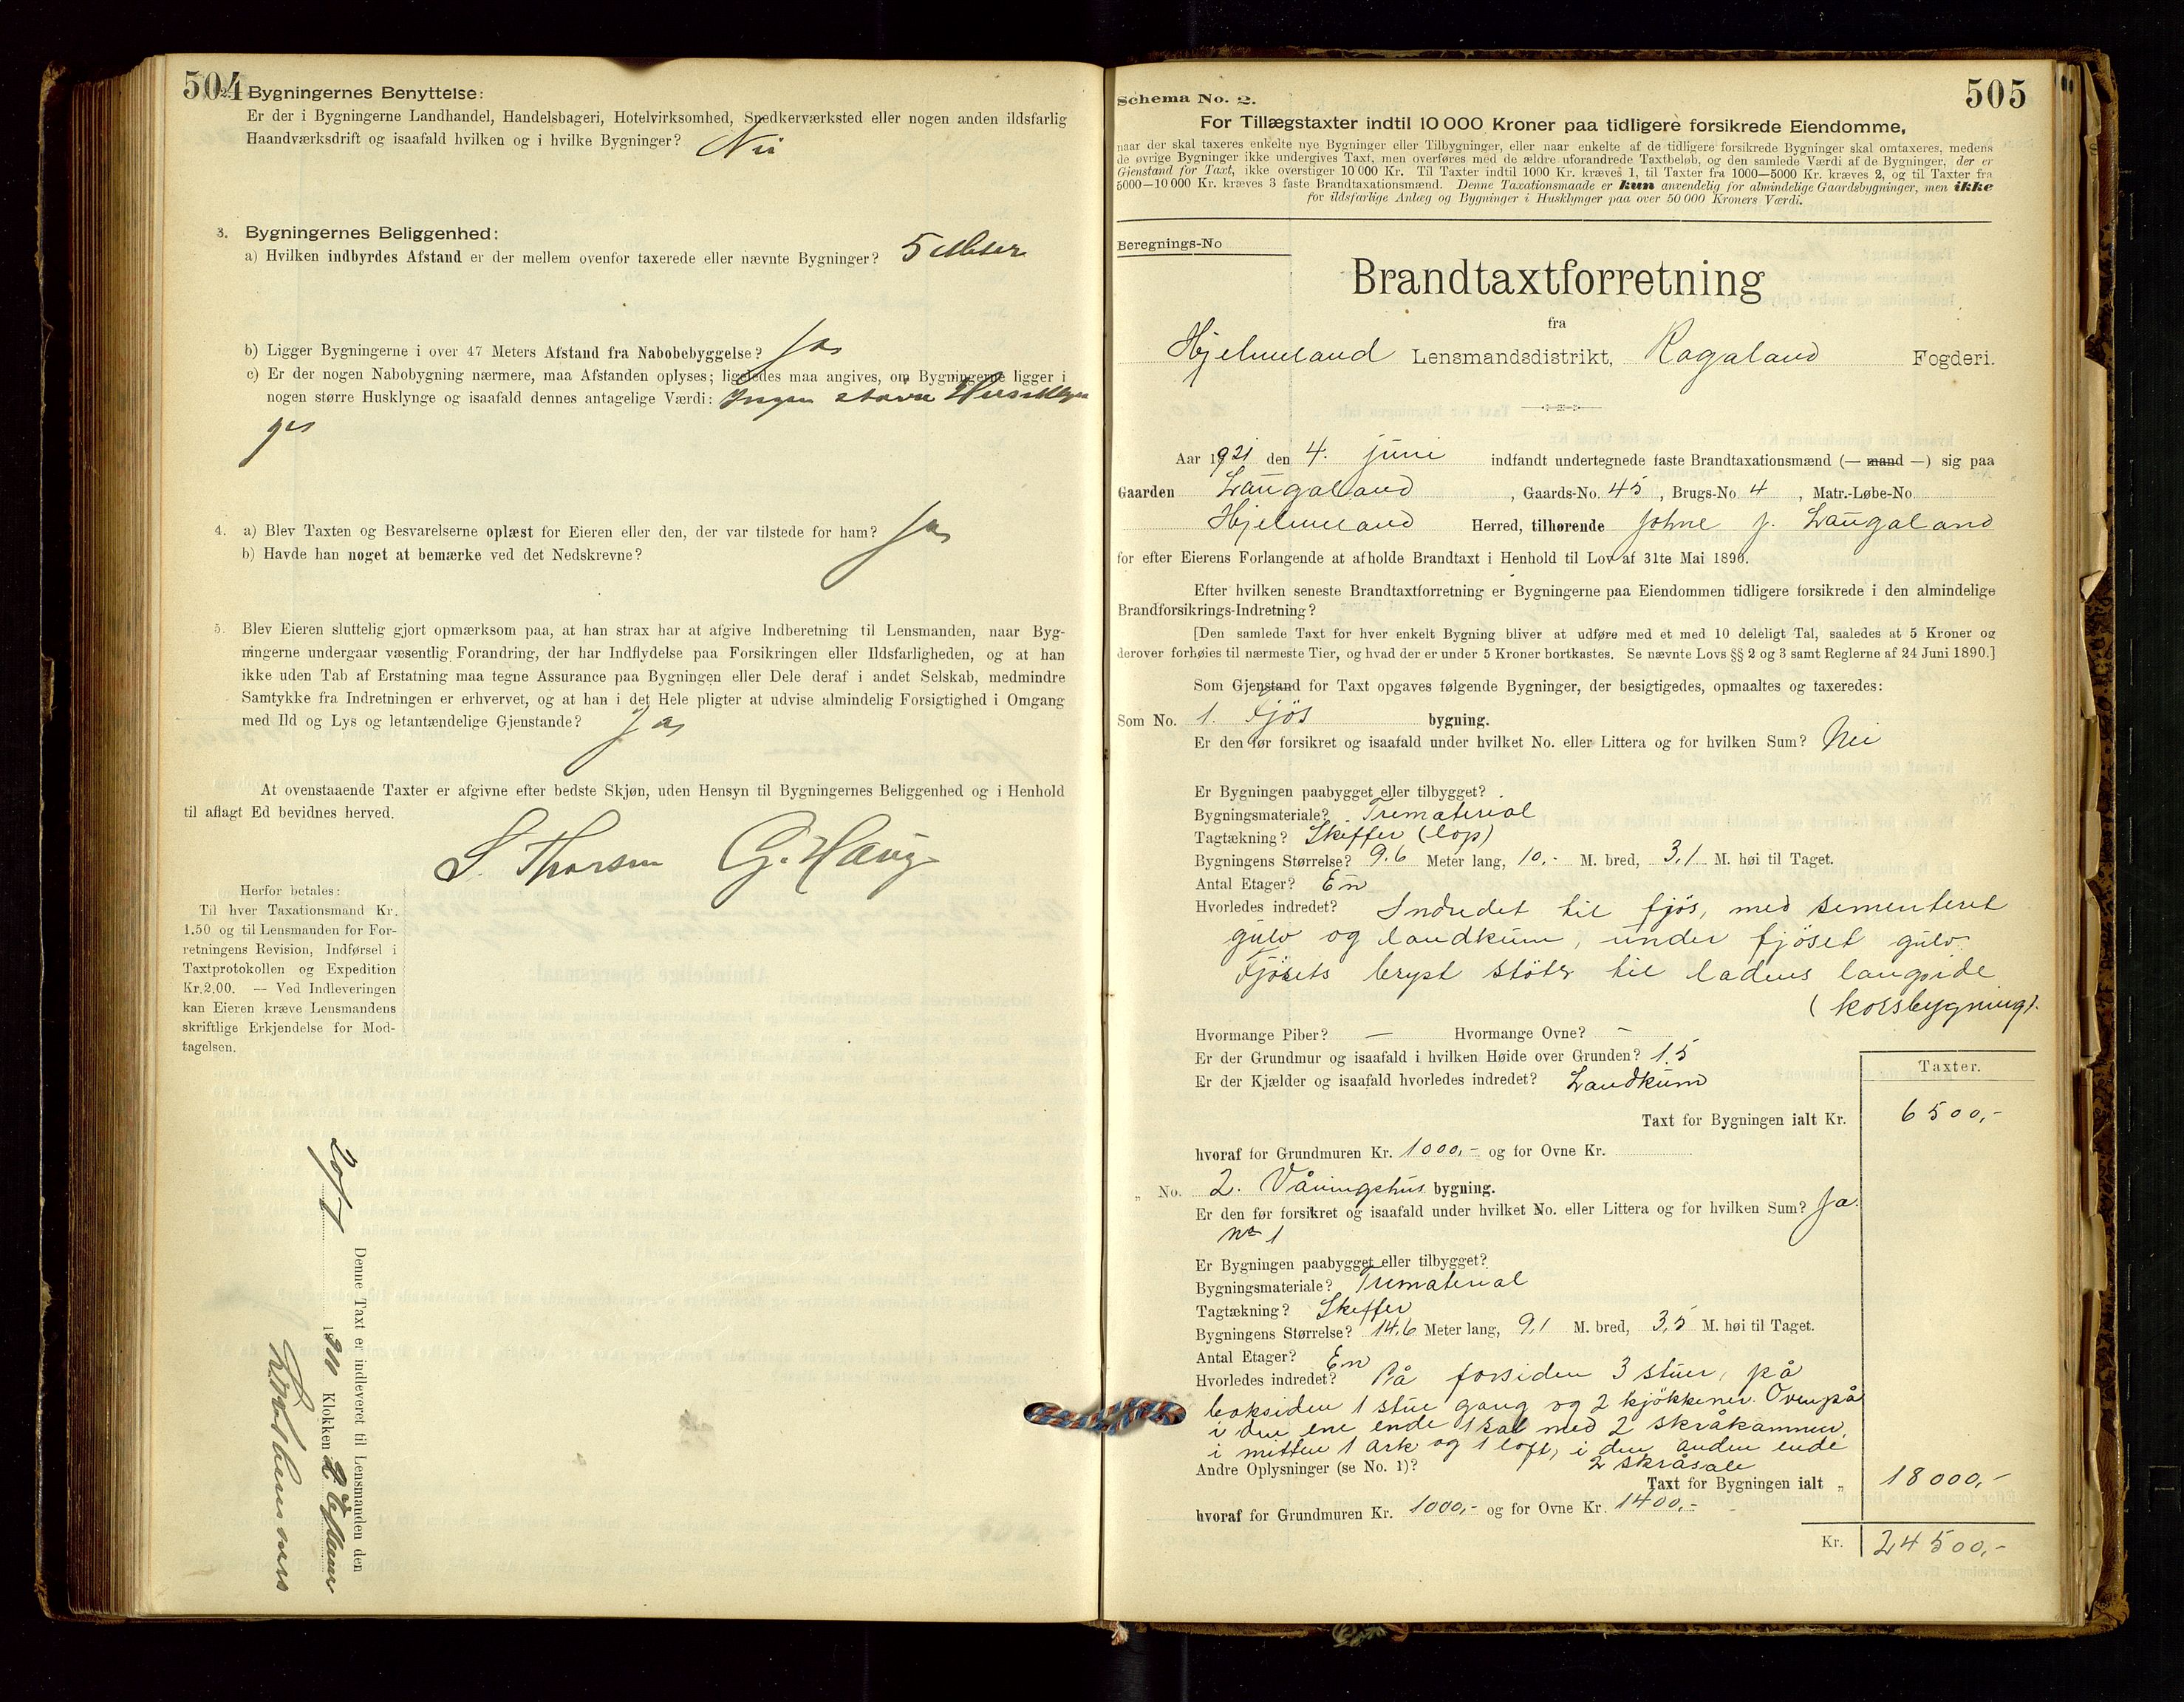 504
2. Bygningernes Benyttelse:
Er der i Bygningerne Landhandel, Handelsbageri, Hotelvirksomhed, Snedkerværksted eller nogen anden ildsfarlig
Haandværksdrift og isaafald hvilken og i hvilke Bygninger? Nei
3. Bygningernes Beliggenhed:
a) Hvilken indbyrdes Afstand er der mellem ovenfor taxerede eller nævnte Bygninger? 5 Meter
b) Ligger Bygningerne i over 47 Meters Afstand fra Nabobebyggelse? Ja
c) Er der nogen Nabobygning nærmere, maa Afstanden oplyses; ligeledes maa angives, om Bygningerne ligger i
nogen større Husklynge og isaafald dennes antagelige Værdi: Ingen större Husklyn
ge
4. a) Blev Taxten og Besvarelserne oplæst for Eieren eller den, der var tilstede for ham? Ja
b) Havde han noget at bemærke ved det Nedskrevne?
5. Blev Eieren sluttelig gjort opmærksom paa, at han strax har at afgive Indberetning til Lensmanden, naar Byg-
ningerne undergaar væsentlig Forandring, der har Indflydelse paa Forsikringen eller Ildsfarligheden, og at han
ikke uden Tab af Erstatning maa tegne Assurance paa Bygningen eller Dele deraf i andet Selskab, medmindre
Samtykke fra Indretningen er erhvervet, og at han i det Hele pligter at udvise almindelig Forsigtighed i Omgang
med Ild og Lys og letantændelige Gjenstande? Ja
At ovenstaaende Taxter er afgivne efter bedste Skjøn, uden Hensyn til Bygningernes Beliggenhed og i Henhold
til aflagt Ed bevidnes herved.
S. Thorsen G. Haug
Herfor betales:
Til hver Taxationsmand Kr.
1.50 og til Lensmanden for For-
retningens Revision, Indførsel i
Taxtprotokollen og Expedition
Kr. 2,00. — Ved Indleveringen
kan Eieren kræve Lensmandens
skriftlige Erkjendelse for Mod-
tagelsen.
Denne Taxt er indleveret til Lensmanden den
Klokken 2
505
Schema No. 2.
For Tillægstaxter indtil 10 000 Kroner paa tidligere forsikrede Eiendomme,
naar der skal taxeres enkelte nye Bygninger eller Tilbygninger, eller naar enkelte af de tidligere forsikrede Bygninger skal omtaxeres, medens
de øvrige Bygninger ikke undergives Taxt, men overføres med de ældre uforandrede Taxtbeløb, og den samlede Værdi af de Bygninger, der er
Gjenstand for Taxt, ikke overstiger 10 000 Kr. Til Taxter indtil 1000 Kr. kræves 1, til Taxter fra 1000—5000 Kr. kræves 2, og til Taxter fra
5000—10 000 Kr. kræves 3 faste Brandtaxationsmænd. Denne Taxationsmaade er kun anvendelig for almindelige Gaardsbygninger, men ikke
for ildsfarlige Anlæg og Bygninger i Husklynger paa over 50 000 Kroners Værdi.
Beregnings-No
Brandtaxtforretning
fra
Hjelmeland Lensmandsdistrikt, Rogaland Fogderi.
Aar 1921 den 4. juni indfandt undertegnede faste Brandtaxationsmænd (— mand —) sig paa
Gaarden Laugaland, Gaards-No. 45, Brugs-No. 4, Matr.-Løbe-No.
Hjelmeland Herred, tilhørende Johne J. Laugaland
for efter Eierens Forlangende at afholde Brandtaxt i Henhold til Lov af 31te Mai 1890.
Efter hvilken seneste Brandtaxtforretning er Bygningerne paa Eiendommen tidligere forsikrede i den almindelige
Brandforsikrings-Indretning?
[Den samlede Taxt for hver enkelt Bygning bliver at udføre med et med 10 deleligt Tal, saaledes at 5 Kroner og
derover forhøies til nærmeste Tier, og hvad der er under 5 Kroner bortkastes. Se nævnte Lovs §§ 2 og 3 samt Reglerne af 24 Juni 1890.]
Som Gjenstand for Taxt opgaves følgende Bygninger, der besigtigedes, opmaaltes og taxeredes:
Som No. 1. Fjös bygning.
Er den før forsikret og isaafald under hvilket No. eller Littera og for hvilken Sum? Nei
Er Bygningen paabygget eller tilbygget?
Bygningsmateriale? Trematerial
Tagtækning? Skiffer (lop)
Bygningens Størrelse? 9.6 Meter lang, 10,- M. bred, 3,1 M. høi til Taget.
Antal Etager? En
Hvorledes indredet? Indredet til fjös, med sementeret
gulv og landkum, under fjöset gulv.
Fjösets bryst stöter til ladens langside
(korsbygning).
Hvormange Piber? — Hvormange Ovne? —
Er der Grundmur og isaafald i hvilken Høide over Grunden? 1,5
Er der Kjælder og isaafald hvorledes indredet? Landkum
Taxter.
Taxt for Bygningen ialt Kr. 6500,-
hvoraf for Grundmuren Kr. 1000,- og for Ovne Kr.
„ No. 2. Våningshus bygning.
Er den før forsikret og isaafald under hvilket No. eller Littera og for hvilken Sum? Ja.
No 1
Er Bygningen paabygget eller tilbygget?
Bygningsmateriale? Trematerial
Tagtækning? Skiffer
Bygningens Størrelse? 14,6 Meter lang, 9,1 M. bred, 3,5 M. høi til Taget.
Antal Etager? En
Hvorledes indredet? På forsiden 3 stuer, på
baksiden 1 stue gang og 2 kjökkener. Ovenpå
i den ene ende 1 sal med 2 skråkammer,
i mitten 1 ark og 1 loft, i den anden ende
Andre Oplysninger (se No. 1)? 2 skråsale
Taxt for Bygningen ialt „ 18000,-
hvoraf for Grundmuren Kr. 1000,- og for Ovne Kr. 1400,-
Kr. 24500,-